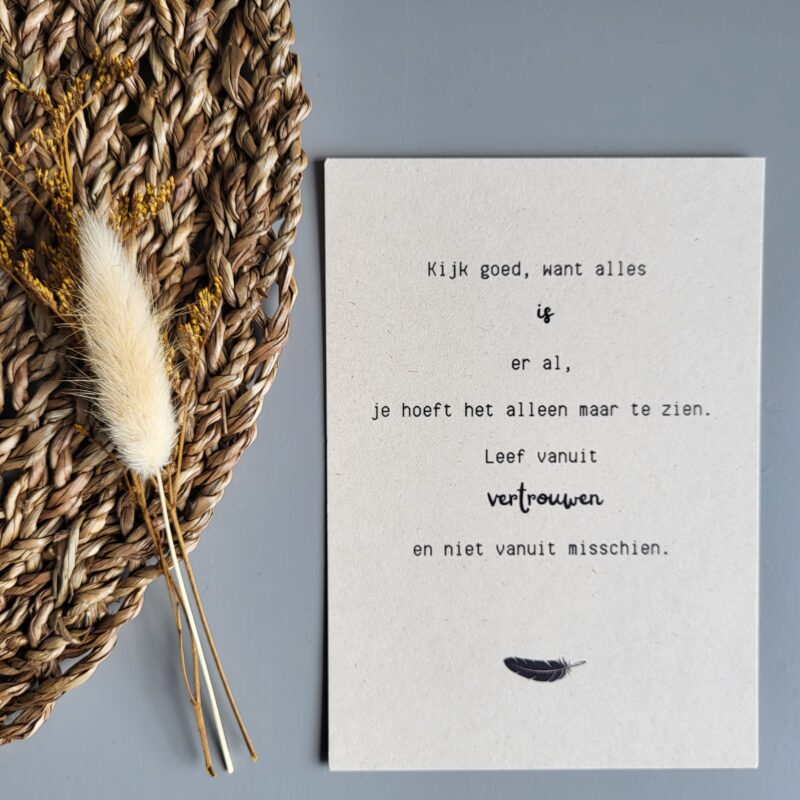 Kijk goed, want alles
is
er al,
je hoeft het alleen maar te zien.
Leef vanuit
vertrouwen
en niet vanuit misschien.